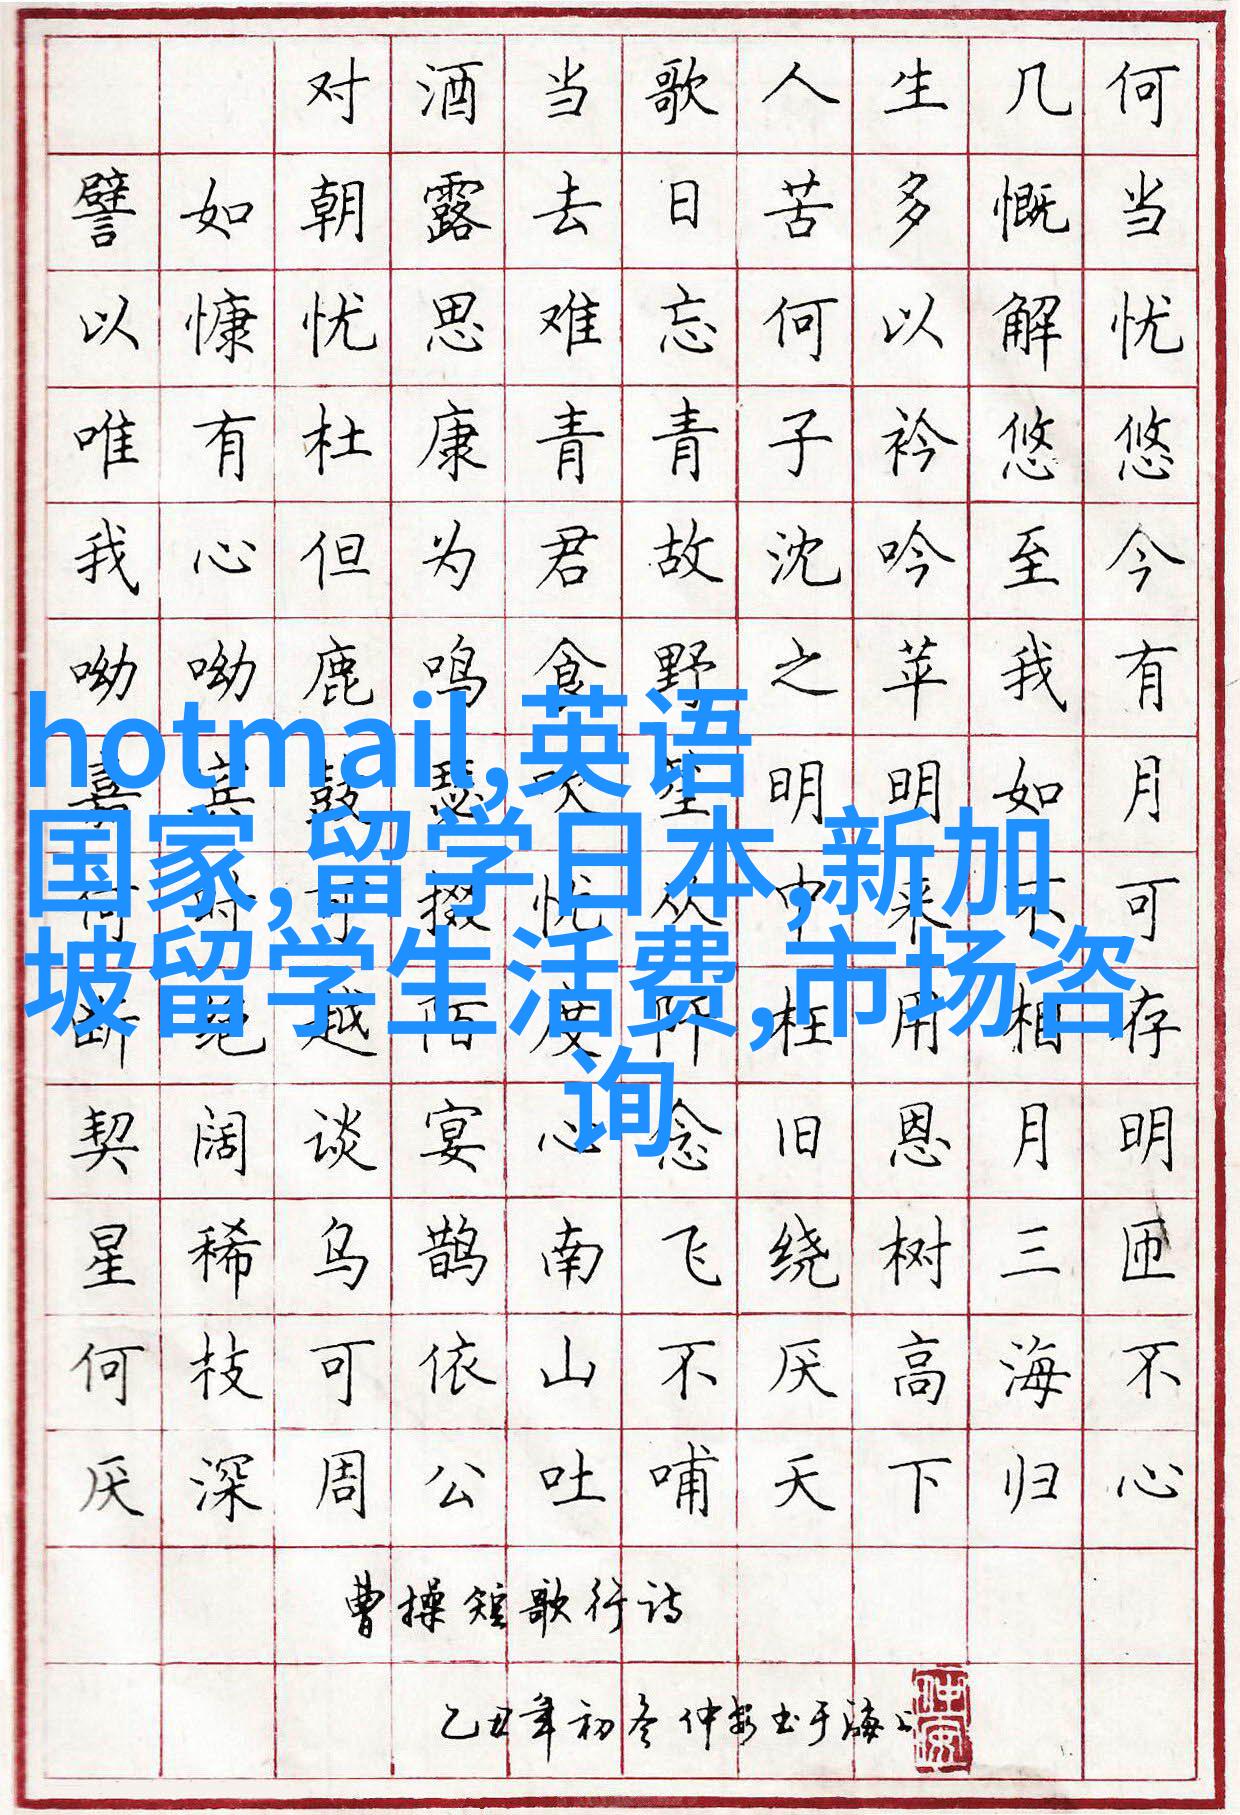 对酒当歌人生几何
譬如朝露去日苦多慨当
以慷忧思难忘何以解忧
唯有杜康青青子衿悠悠
我心但为君故沈吟至今
呦呦鹿鸣食野之苹我有
hotmail,英语
嘉宾鼓瑟吹笙明明如月
国家,留学日本,新加
何时可掇忧从中来不可
坡留学生活费,市场咨
断绝越陌度阡枉用相存
询
契阔谈宴心念旧恩月明
星稀乌鹊南飞绕树三匝
何枝可依山不厌高海不
厌深周公吐哺天下归心
曹操短歌行诗
乙丑年初冬仲安书于海上
仲安